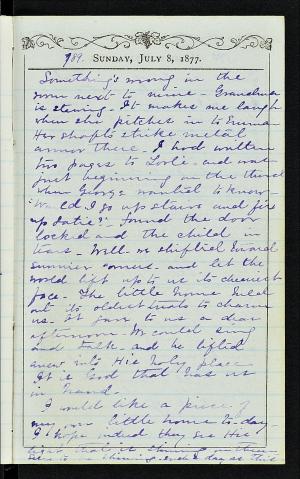 189. SUNDAY, JULY 8, 1877.
Something's wrong in the
room next to mine - Grandma
is stewing - It makes me laugh
when she pitches in to Emma
Her shafts strike metal
armor there. I had written
two pages to and was
just beginning on the third
when George wanted to know
"Would I go up stairs and fix
up Katie?" Found the door
locked and the child in
tears - Well - we shifted toward
summer and let the
world lift up to us its cheeriest
face - The little home held
out its oldest to charm
us - It gave to us a dear
afternoon - We could sing
and talk - and be lifted
anew into His holy place.
It is God that has us
in hand.
I would like a piece of
my own little home to-day -
I hope indeed they see His
light that it shining in their